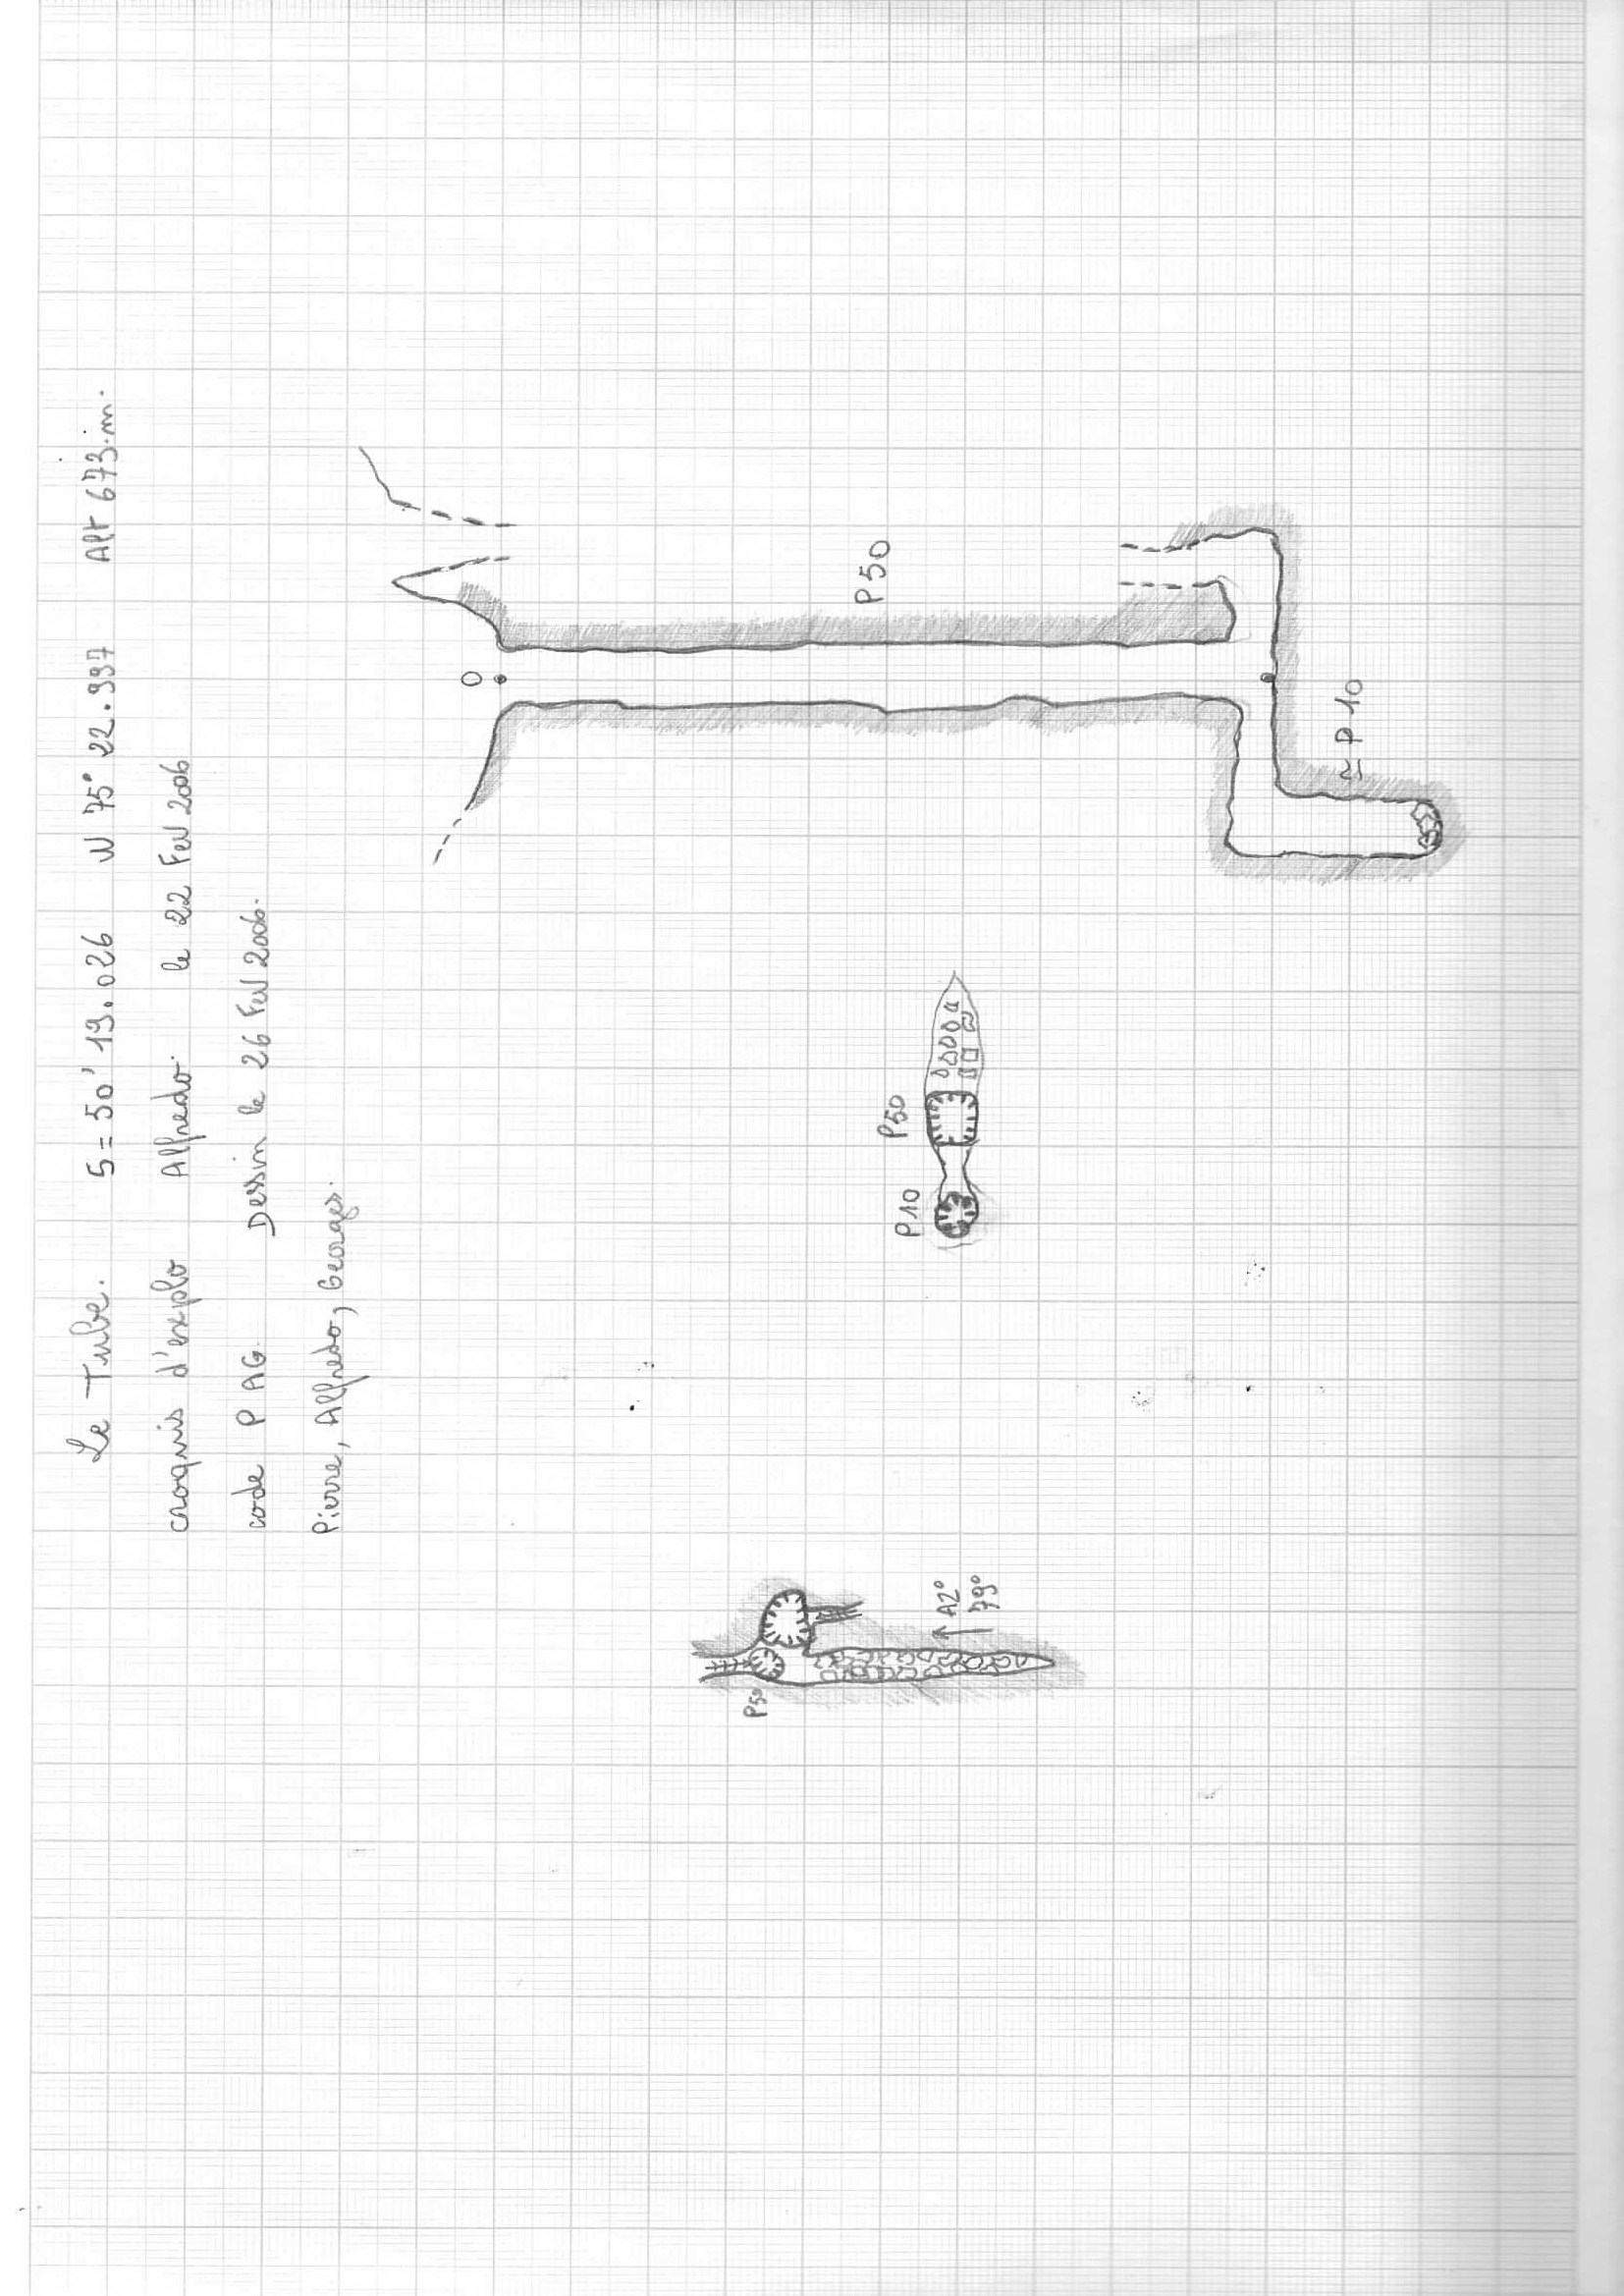 Le Tube. S = 50' 19.026 W 75° 22.997 Alt 673.m.
croquis d'explo Alfredo. le 22 Fev 2006
code P AG. Dessin le 26 Fev 2006.
Pierre, Alfredo, Georges.
0
P 50
≈ P 10
P50
P10
P50
AZ°
79°